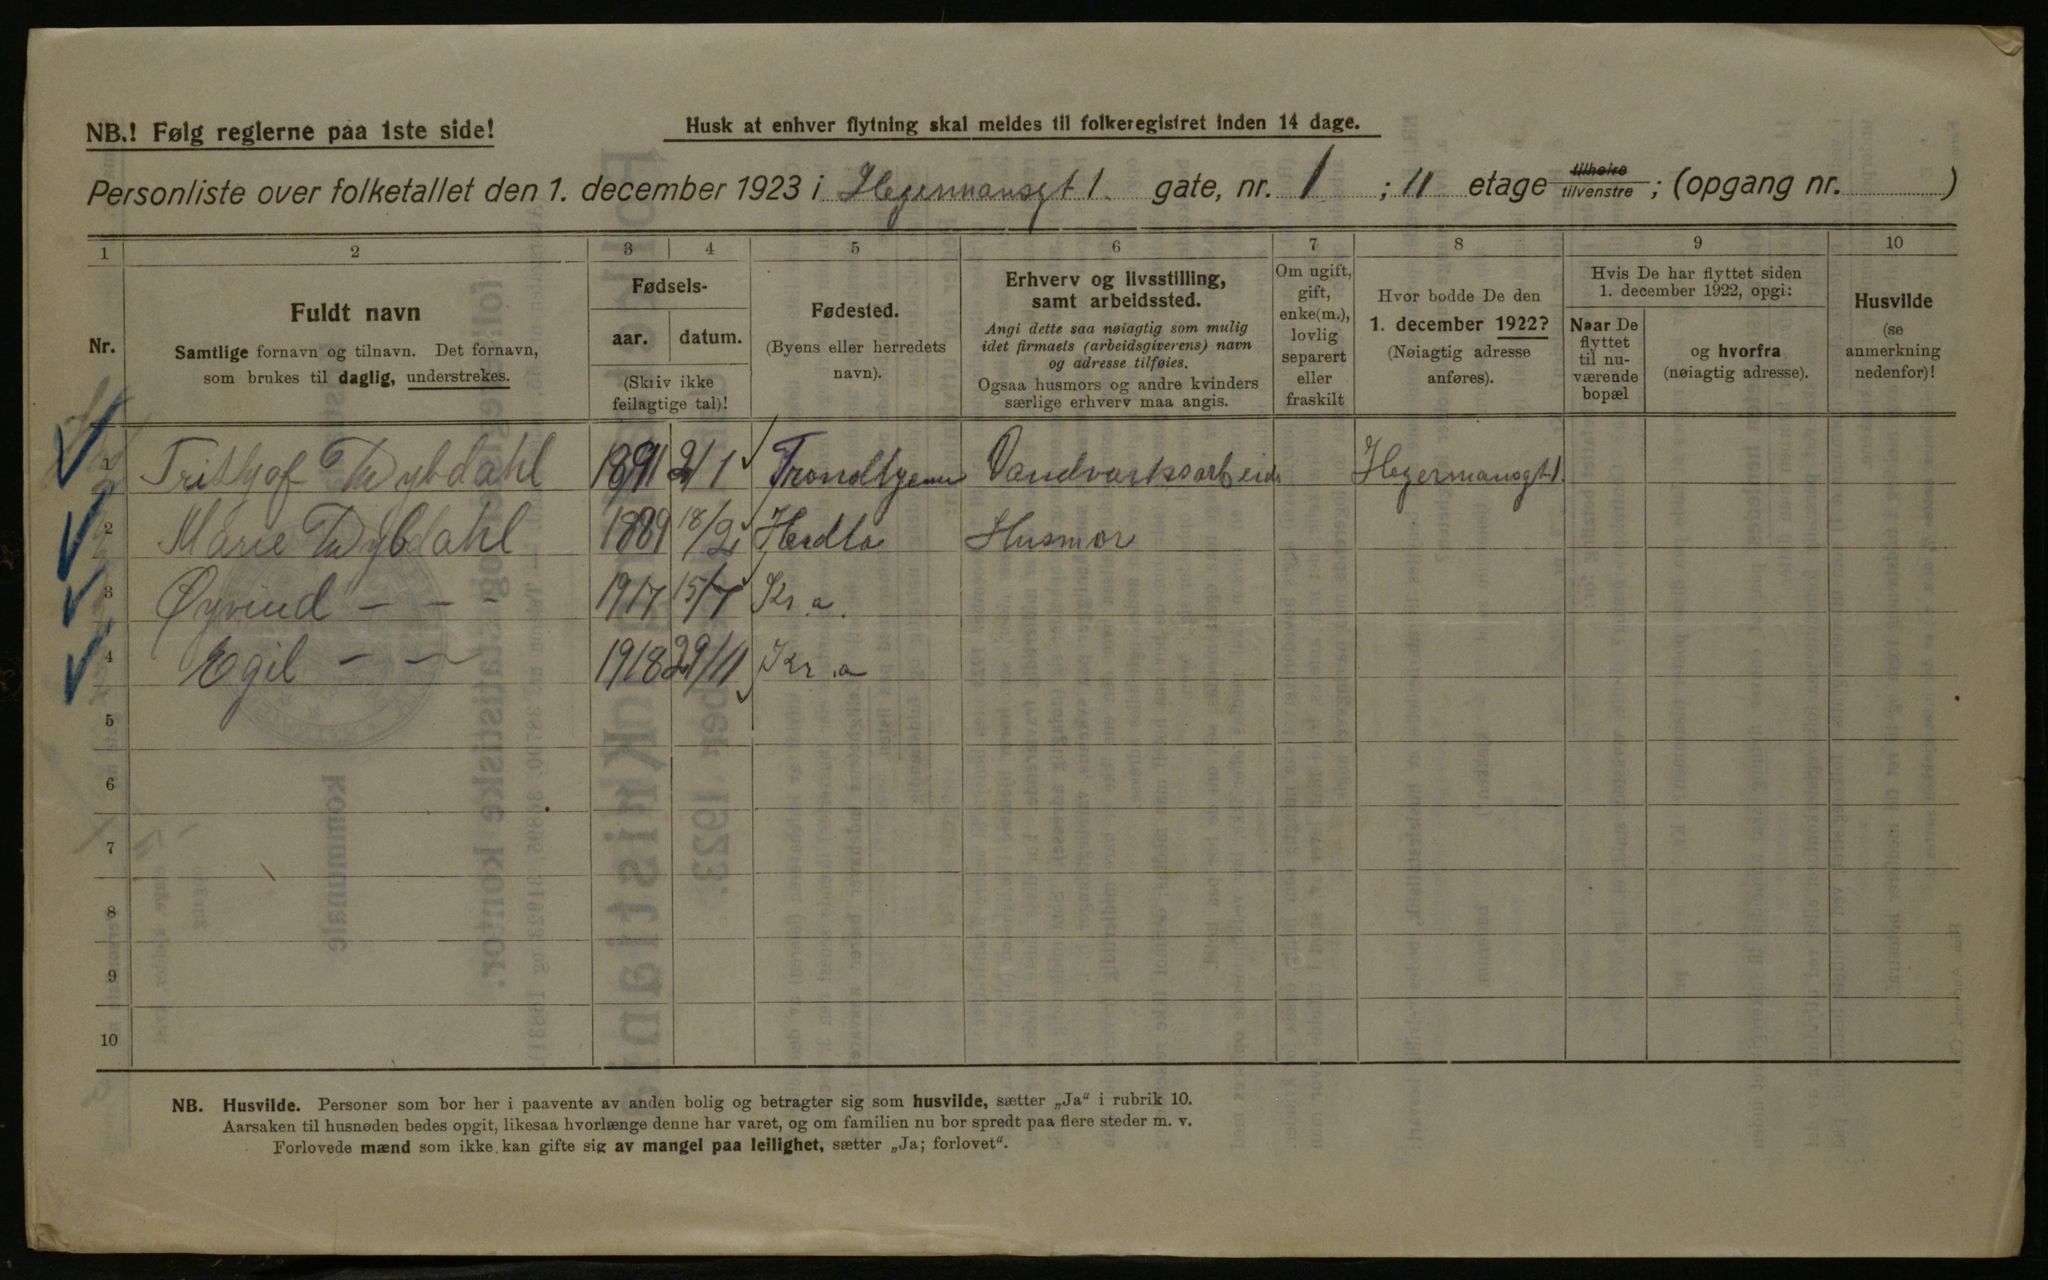 NB.! Følg reglerne paa 1ste side!
Husk at enhver flytning skal meldes til folkeregistret inden 14 dage.
Personliste over folketallet den 1. december 1923 i Hegermansgt 1. gate, nr. 1 ; 11 etage tilhøire tilvenstre ; (opgang nr. )
1 2 3 4 5 6 7 8 9 10
Nr.
Fuldt navn
Samtlige fornavn og tilnavn. Det fornavn,
som brukes til daglig, understrekes.
Fødsels-
aar. datum.
(Skriv ikke
feilagtige tal)!
Fødested.
(Byens eller herredets
navn).
Erhverv og livsstilling,
samt arbeidssted.
Angi dette saa nøiagtig som mulig
idet firmaets (arbeidsgiverens) navn
og adresse tilføies.
Ogsaa husmors og andre kvinders
særlige erhverv maa angis.
Om ugift,
gift,
enke(m.),
lovlig
separert
eller
fraskilt
Hvor bodde De den
1. december 1922?
(Nøiagtig adresse
anføres).
Hvis De har flyttet siden
1. december 1922, opgi:
Naar De
flyttet
til nu-
værende
bopæl
og hvorfra
(nøiagtig adresse).
Husvilde
(se
anmerkning
nedenfor)!
1 Trithjof Dybdahl 1891 2/1 Trondhjem Vandværksarbeid Hegermansgt 1.
2 Marie Dybdahl 1889 18/2 Herdla Husmor
3 Øyvind - - - 1917 15/7 Kr.a.
4 Egil - - 1918 29/11 Kr.a
5
6
7
8
9
10
NB. Husvilde. Personer som bor her i paavente av anden bolig og betragter sig som husvilde, sætter „Ja“ i rubrik 10.
Aarsaken til husnøden bedes opgit, likesaa hvorlænge denne har varet, og om familien nu bor spredt paa flere steder m. v.
Forlovede mænd som ikke kan gifte sig av mangel paa leilighet, sætter „Ja; forlovet“.